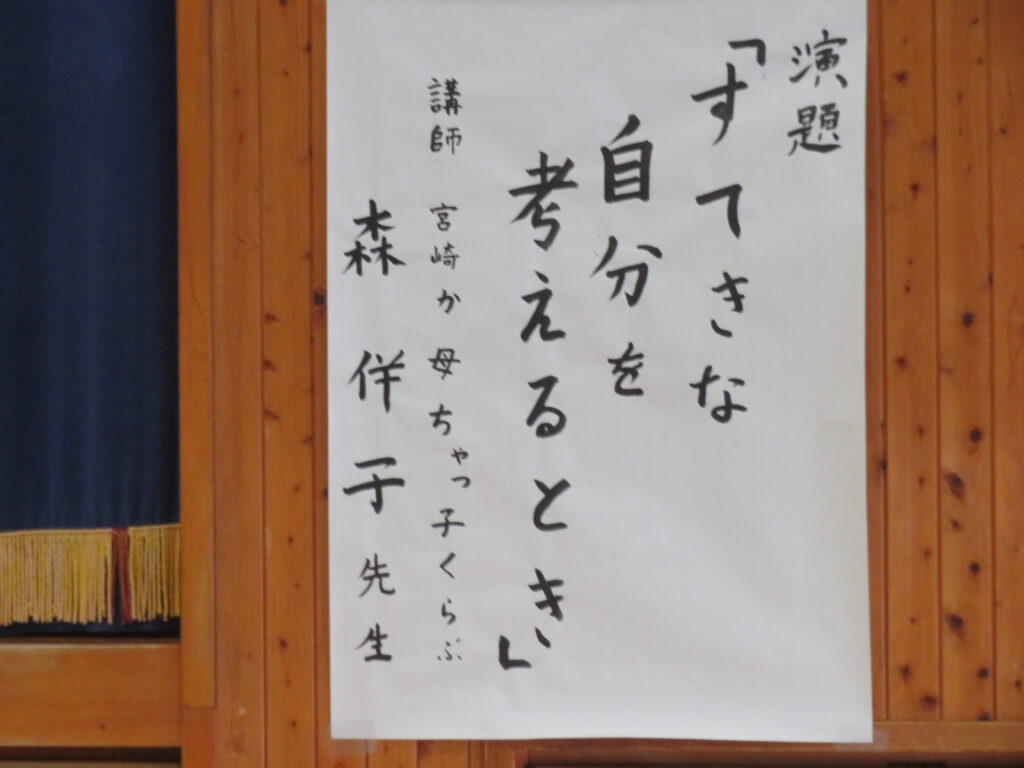 演題
「すてきな
自分を
考えるとき」
講師 宮崎か母ちゃっ子くらぶ
森 伴子先生